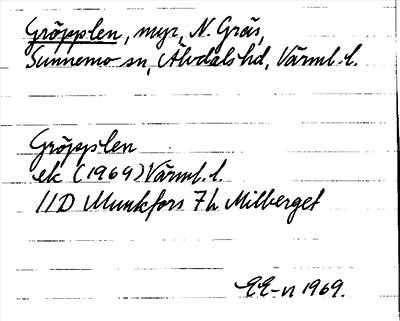 Gröpplen, myr, N. Gräs,
Sunnemo sn, Älvdals hd, Värml. l.
Gröpplen
ek (1969) Värml. l.
11D Munkfors 7h Milberget
EE-n 1969.